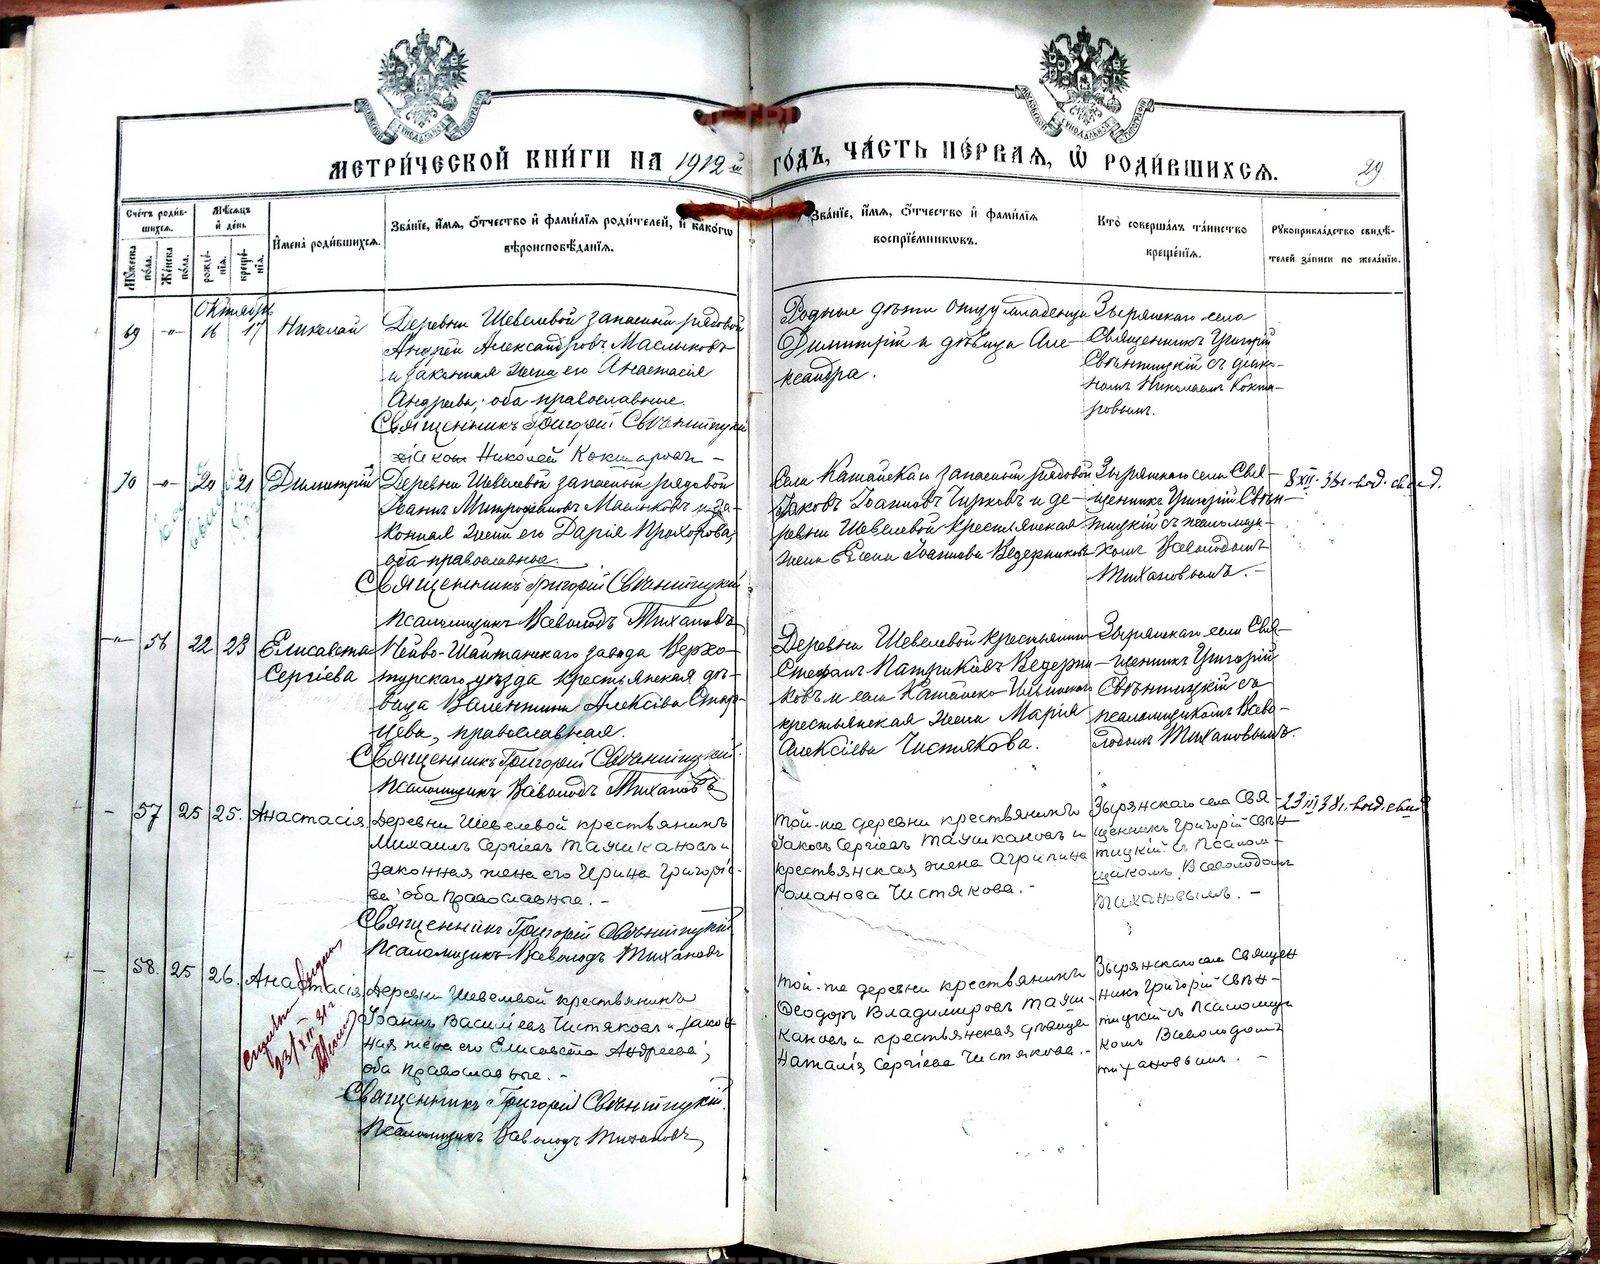 МЕТРИ́ЧЕСКОЙ КНИ́ГИ НА 1912-й
ГО́ДЪ, ЧА́СТЬ ПЕ́РВАЯ, Ѡ РОДИ́ВШИХСѦ.
29
Сче́тъ роди́в-
шихсѧ.
Мꙋ́жеска по́ла.
Же́нска по́ла.
Мѣ́сѧцъ
и҆ де́нь
рожде́-
нїѧ.
креще́-
нїѧ.
И҆мена̀ роди́вшихсѧ.
Зва́нїе, и҆́мѧ, ѻ҆́тчество и҆ фами́лїѧ роди́телей, и҆ како́гѡ
вѣроисповѣ́данїѧ.
Зва́нїе, и҆́мѧ, ѻ҆́тчество и҆ фами́лїѧ
воспрїе́мникѡвъ.
Кто̀ соверша́лъ та́инство
креще́нїѧ.
Рꙋкоприкла́дство свидѣ́-
телей за́писи по жела́нїю.
Октябрь
69 -"- 16 17 Николай
Деревни Шевелевой запасный рядовой
Андрей Александровъ Маслыковъ
и законная жена его Анастасія
Андреева; оба православные.
Священникъ Григорій Свѣнтицкій
діаконъ Николай Кокшаровъ
Родные дѣти отцу младенца
Димитрій и дѣвица Але-
ксандра.
Зырянскаго села
Священникъ Григорій
Свѣнтицкій съ діако-
номъ Николаемъ Кокша-
ровымъ.
70 -"- 20 21 Димитрій
Деревни Шевелевой запасный рядовой
Іоаннъ Митрофановъ Маслыковъ и за-
конная жена его Дарія Прохорова,
оба православные.
Священникъ Григорій Свѣнтицкій
Псаломщикъ Всеволодъ Тихановъ
Села Катайска запасный рядовой
Іаковъ Іоанновъ Чирковъ и де-
ревни Шевелевой крестьянская
жена Елена Іоаннова Ведерникова
Зырянскаго села Свя-
щенникъ Григорій Свѣн-
тицкій съ псаломщи-
комъ Всеволодомъ
Тихановымъ. -
8 XII-38г. выд. свид.
-"- 56 22 23 Елисавета
Сергіева
Нейво-Шайтанскаго завода Верхо-
турскаго уѣзда крестьянская дѣ-
вица Валентина Алексіева Стар-
цева, православная.
Священникъ Григорій Свѣнтицкій
Псаломщикъ Всеволодъ Тихановъ
Деревни Шевелевой крестьянинъ
Стефанъ Патрикіевъ Ведерни-
ковъ и села Катайско-Ильинскаго
крестьянская жена Марія
Алексіева Чистякова.
Зырянскаго села Свя-
щенникъ Григорій
Свѣнтицкій съ
псаломщикомъ Всево-
лодомъ Тихановымъ.
- 57 25 25. Анастасія
Деревни Шевелевой крестьянинъ
Михаилъ Сергіевъ Таушкановъ и
законная жена его Ирина Григоріе-
ва; оба православные. -
Священникъ Григорій Свѣнтицкій
Псаломщикъ Всеволодъ Тихановъ
Той-же деревни крестьянинъ
Іаковъ Сергіевъ Таушкановъ и
крестьянская жена Агрипина
Романова Чистякова. -
Зырянскаго села Свя-
щенникъ Григорій Свѣн-
тицкій съ Псалом-
щикомъ Всеволодомъ
Тихановымъ. -
23 III 38г. выд. свид
- 58. 25 26. Анастасія
Деревни Шевелевой крестьянинъ
Іоаннъ Василіевъ Чистяковъ и закон-
ная жена его Елисавета Андреева;
оба православные. -
Священникъ Григорій Свѣнтицкій.
Псаломщикъ Всеволодъ Тихановъ
Той-же деревни крестьянинъ
Ѳеодоръ Владимировъ Тауш-
кановъ и крестьянская дѣвица
Наталія Сергіева Чистякова. -
Зырянскаго села Священ
никъ Григорій Свѣн-
тицкій съ Псаломщи
комъ Всеволодомъ
Тихановымъ. -
23/XII 31г